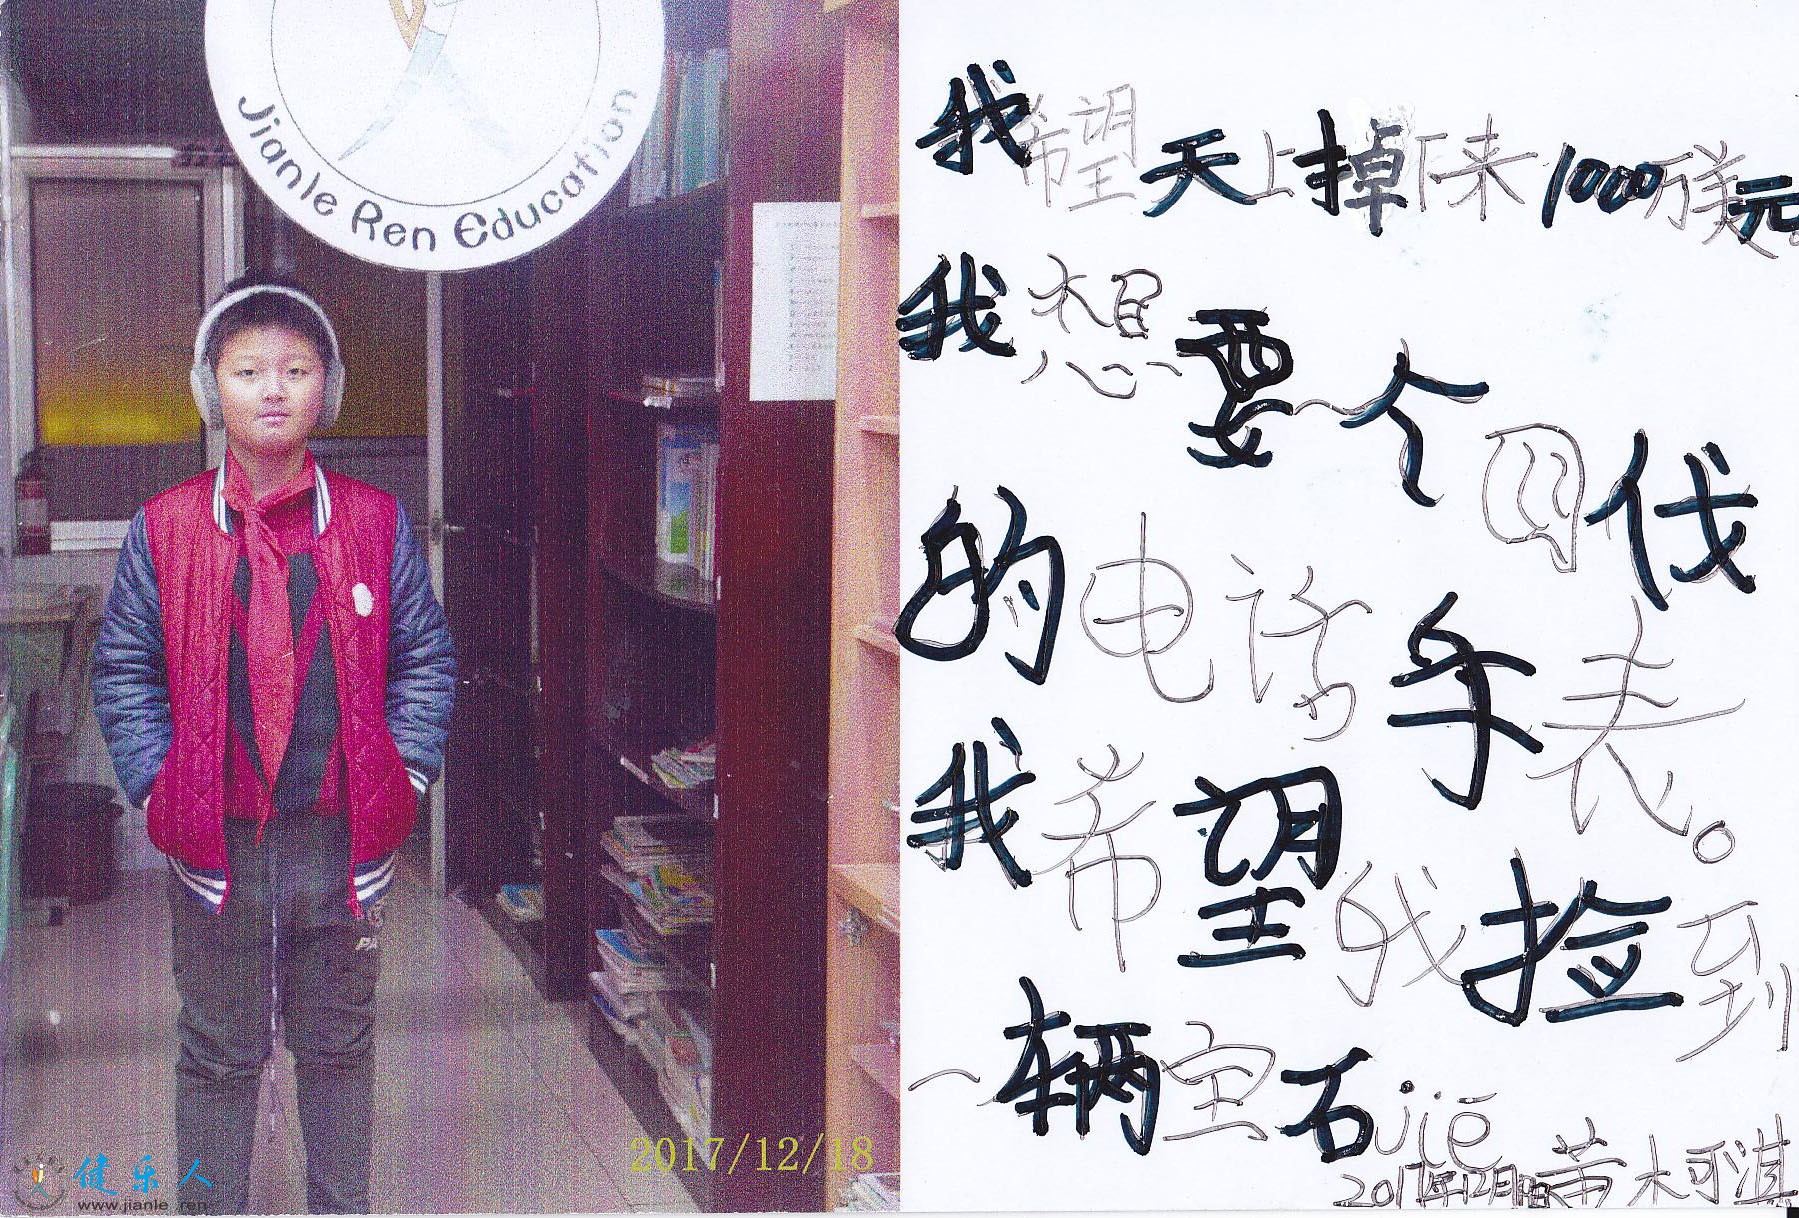 Jianle Ren Education
2017/12/18
健乐人
www.jianle ren
我希望天上掉下来1000万美元。
我想要一个四伐
的电话手表。
我希望我捡到
一辆宝石jié
2017年12月18日 木可淇